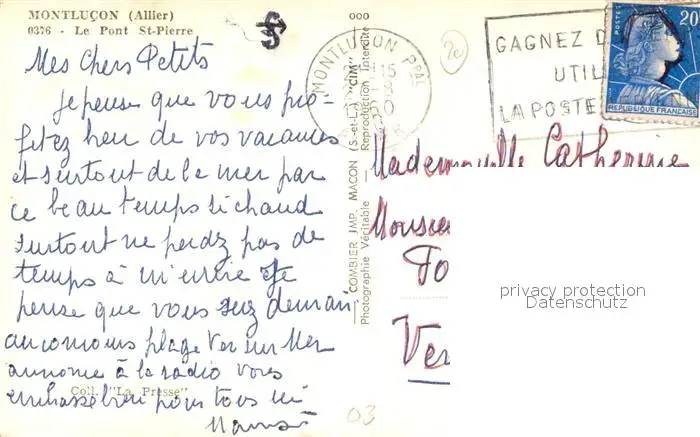 MONTLUÇON (Allier)
0376 - Le Pont St-Pierre
Mes Chers Petits
Je pense que vous pro-
fitez bien de vos vacances
et surtout de la mer par
ce beau temps si chaud
surtout ne perdez pas de
temps à m'écrire Je
pense que vous serez demain
au concours plage Ver sur Mer
annoncé à la radio vous
embrasse bien pour tous
Coll. "La Presse"
COMBIER IMP. MACON (S.-et-L.) "CIM"
Photographie Véritable - Reproduction Interdite
MONTLUÇON PPAL
15
20
GAGNEZ D
UTIL
LA POSTE
POSTES
20
REPUBLIQUE FRANÇAISE
Mademoiselle Catherine
Monsieu
Ver
privacy protection
Datenschutz
03